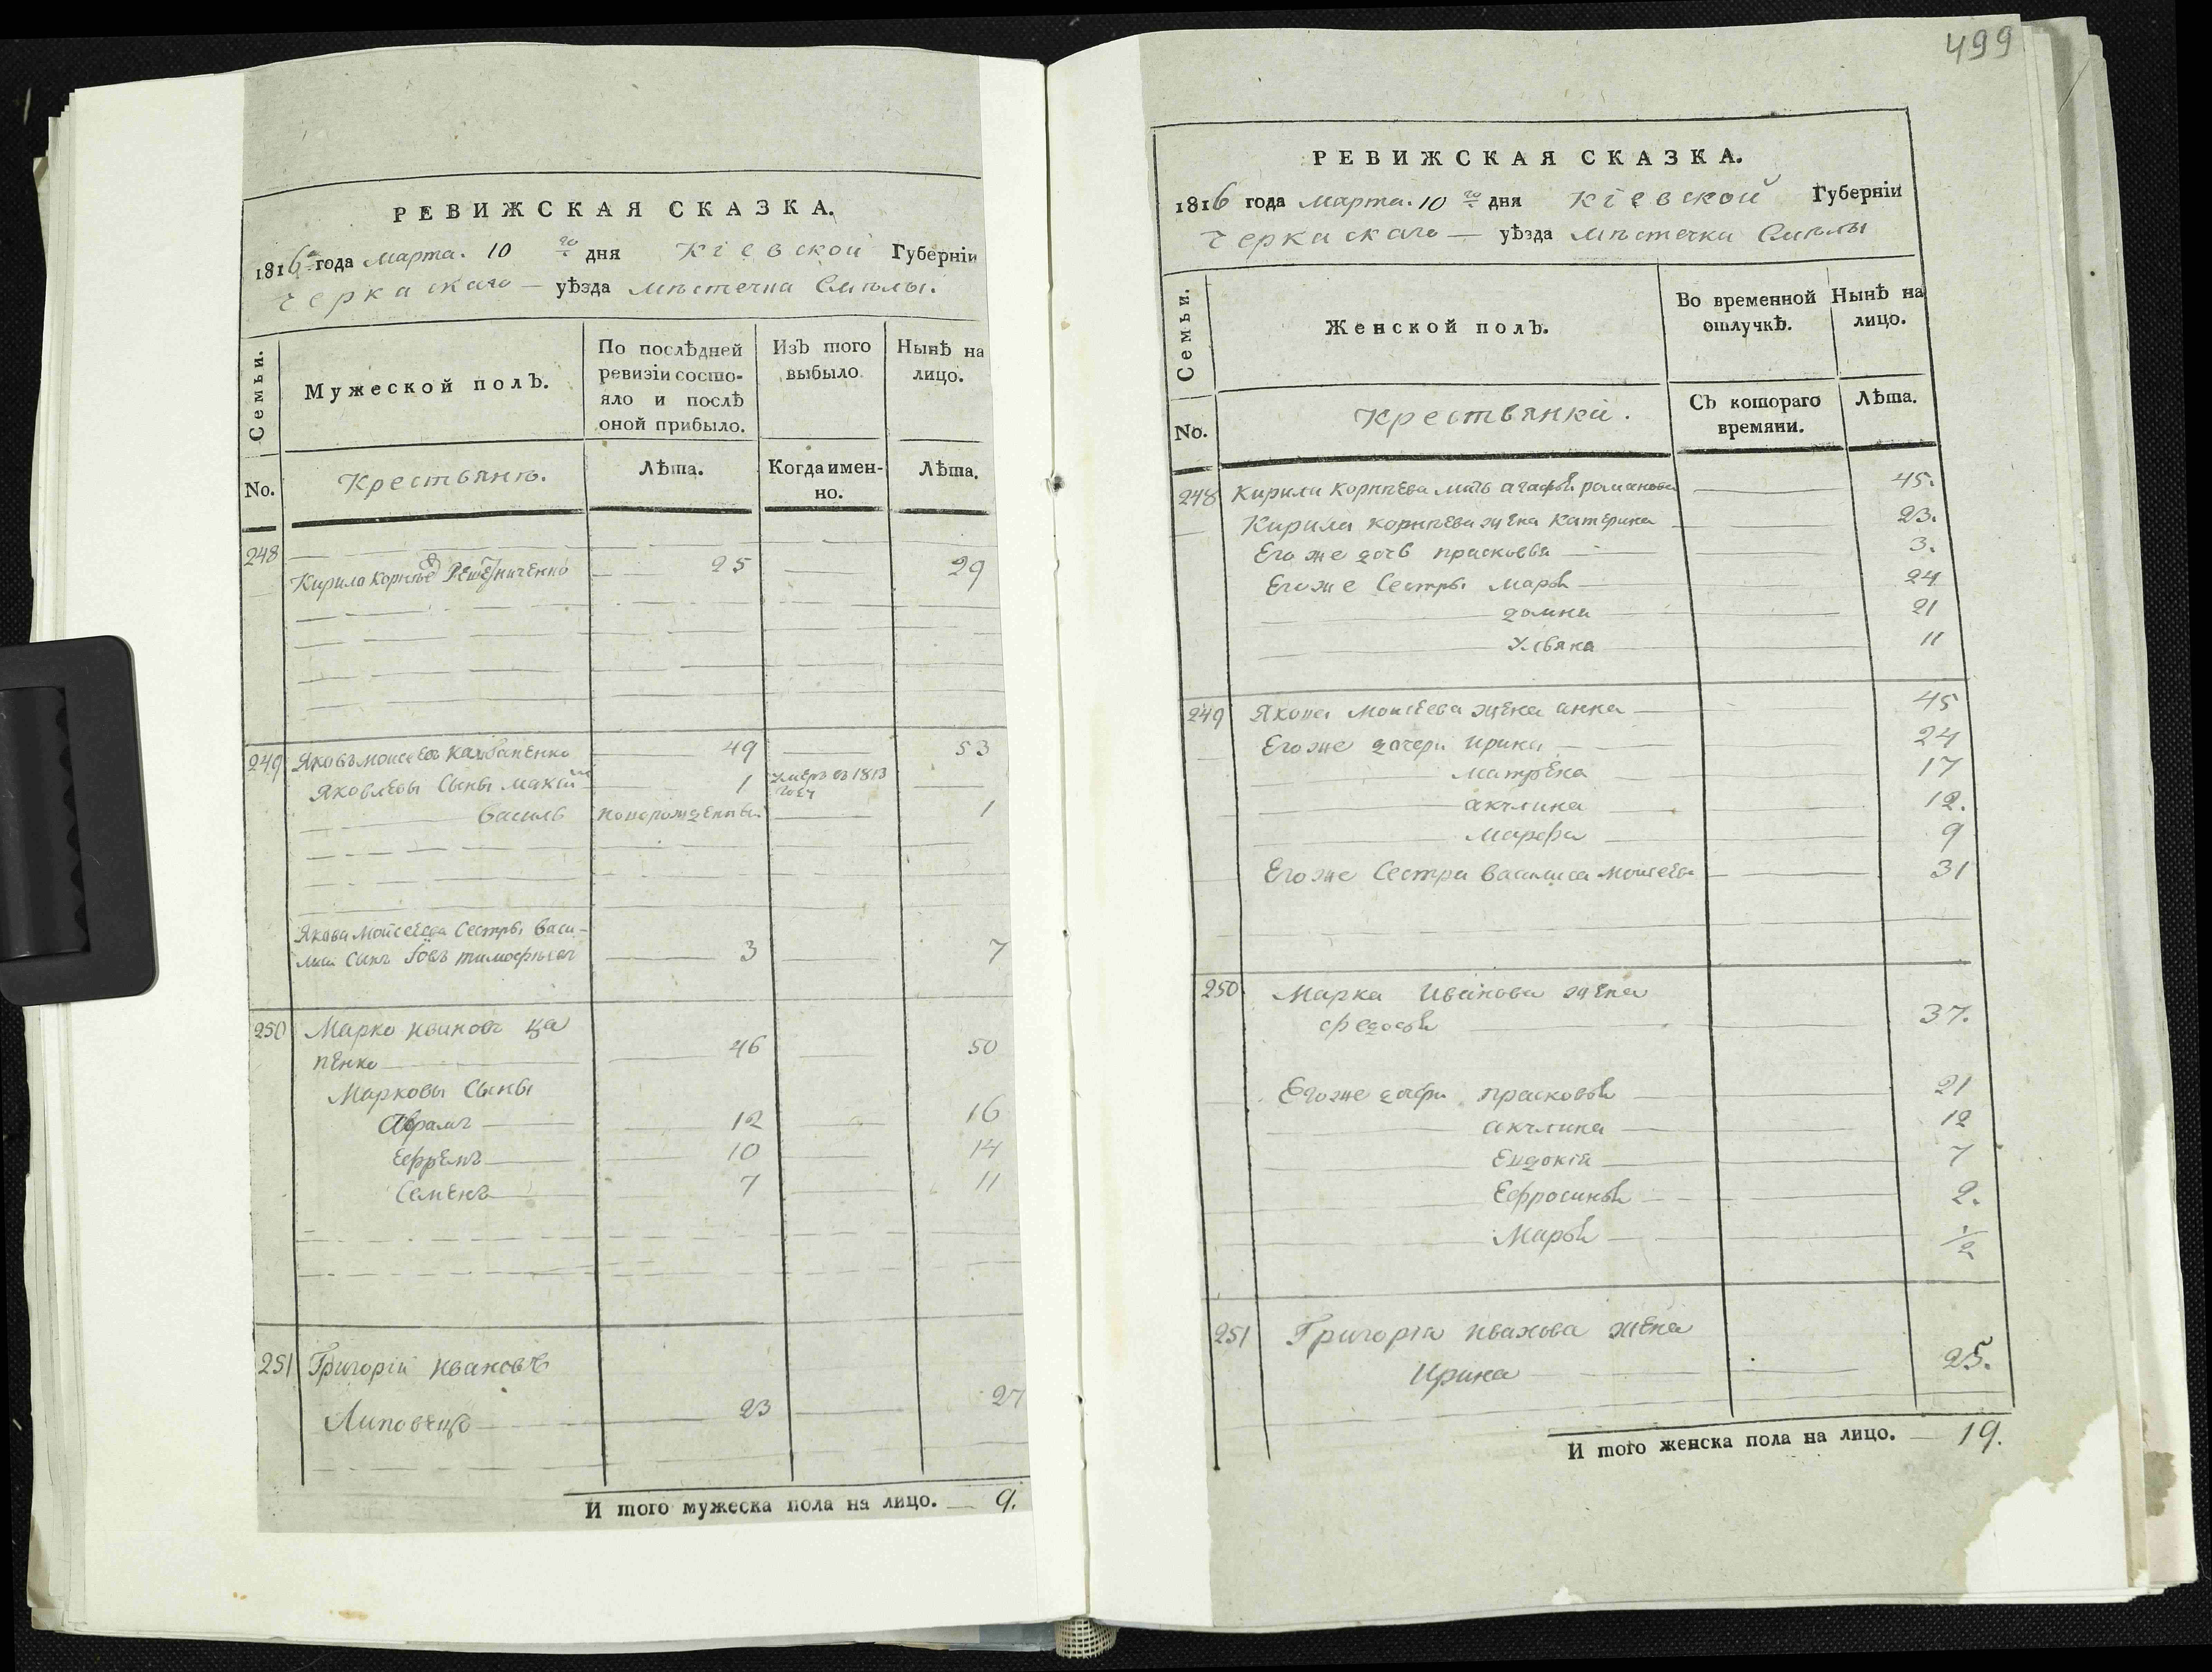 499
РЕВИЖСКАЯ СКАЗКА.
1816 года марта. 10 го дня Кіевской Губерніи
Черкаскаго — уѣзда мѣстечка Смѣлы.
Семьи.
Мужеской полъ.
По послѣдней ревизіи состо-
яло и послѣ
оной прибыло.
Изъ того
выбыло.
Нынѣ на
лицо.
No.
Крестьянъ.
Лѣта.
Когда имен-
но.
Лѣта.
248
Кирило Корнѣев 25 29
249 Яковъ Моисеев 49 53
Яковлевы Сыны 1 умеръ въ 1813
году
Василь новорожденный 1
Якова Моисеева Сестры Васи-
лисы Сынъ Іовъ Тимофѣевъ 3 7
250 Марко Ивановъ Ца
пенко 46 50
Марковы Сыны
Аврамъ 12 16
Ефремъ 10 14
Семенъ 7 11
251 Григорій Ивановъ
Липовецъ 23 27
И того мужеска пола на лицо. — 9.
РЕВИЖСКАЯ СКАЗКА.
1816 года Марта. 10 го дня Кіевской Губерніи
Черкаскаго — уѣзда мѣстечка Смѣлы
Семьи.
Женской полъ.
Во временной
отлучкѣ.
Нынѣ на
лицо.
No.
Крестьянки.
Съ котораго
времяни.
Лѣта.
248 Кирила Корнѣева мать агафья романова 45.
Кирила корнѣева жена Катерина 23.
Его же дочь прасковья 3.
Его же Сестры марья 24
домна 21
Ульяна 11
249 Якова Моисеева жена анна 45
Его же дочери ирина 24
матрена 17
акулина 12.
марфа 9
Его же Сестра василиса моисеева 31
250 Марка Иванова жена
федосья 37.
Его же дочери прасковья 21
акулина 12
Евдокія 7
Ефросинья 2.
Марья 1/2
251 Григорія Иванова жена
Ирина 25.
И того женска пола на лицо. — 19.